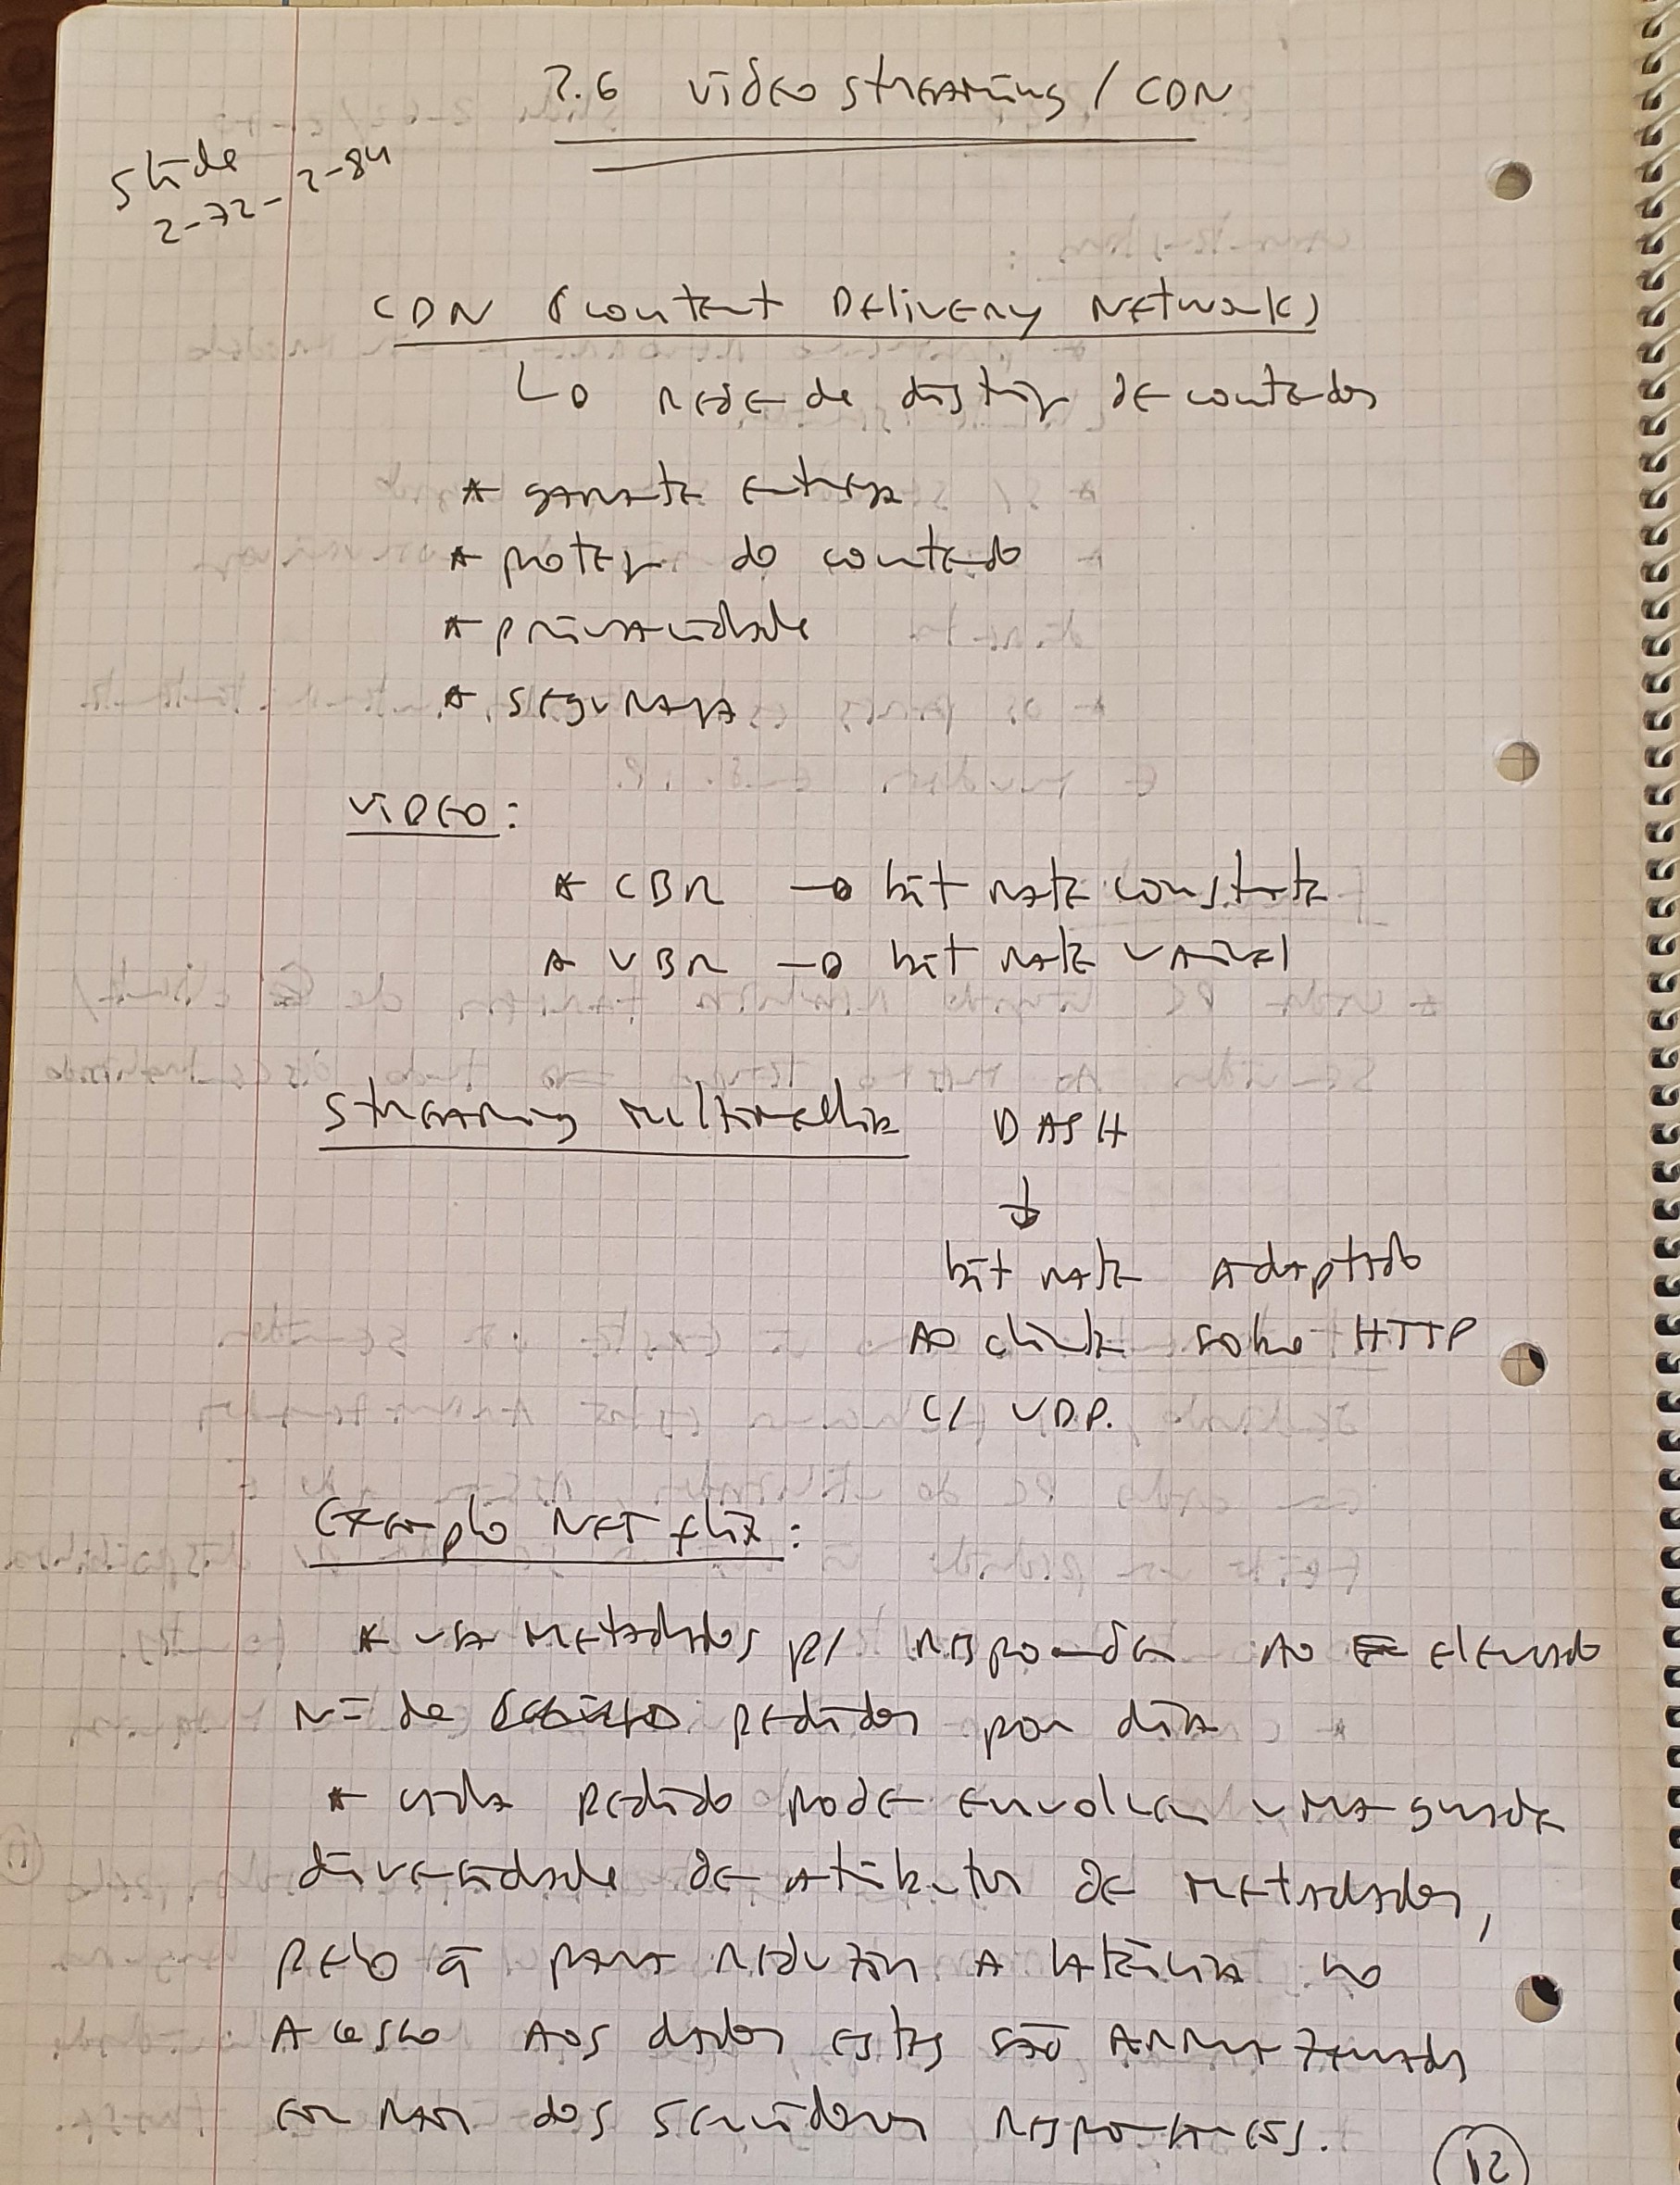 2.6 video streaming / CDN
Slide
2-72 - 2-84
CDN (Content Delivery Network)
↳ rede de distrib de conteudos
* garante entrega
* proteç do conteudo
* privacidade
* segurança
VIDEO:
* CBR → bit rate constante
* VBR → bit rate variavel
Streaming multimedia DASH
↓
bit rate adaptado
ao cliente sobre HTTP
c/ UDP.
Exemplo NETflix:
* usa metadados p/ responder ao elevado
Nº de pedidos por dia
* cada pedido pode envolver uma grande
diversidade de atributos de metadados,
pelo q para reduzir a latência no
acesso aos dados estes são armazenados
em RAM dos servidores
12